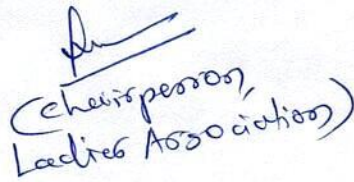 (Chairperson,
Ladies Association)